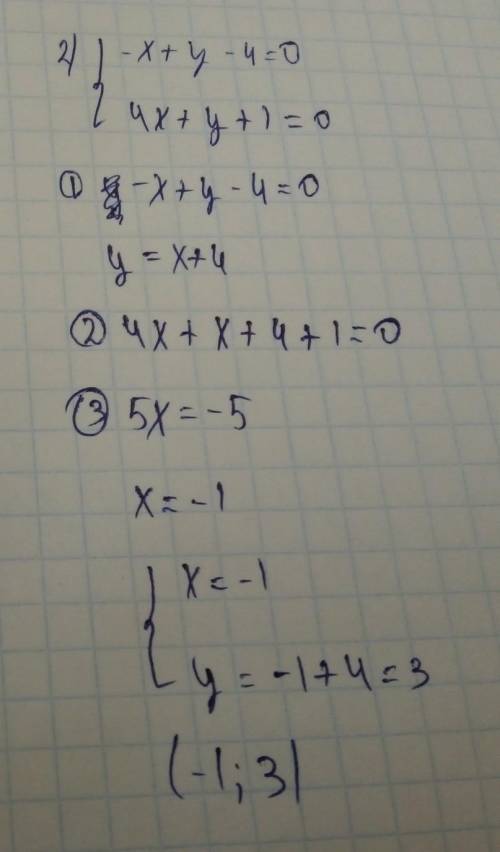 2) { -x + y - 4 = 0
4x + y + 1 = 0
① -x + y - 4 = 0
y = x + 4
② 4x + x + 4 + 1 = 0
③ 5x = -5
x = -1
{ x = -1
y = -1 + 4 = 3
(-1; 3)